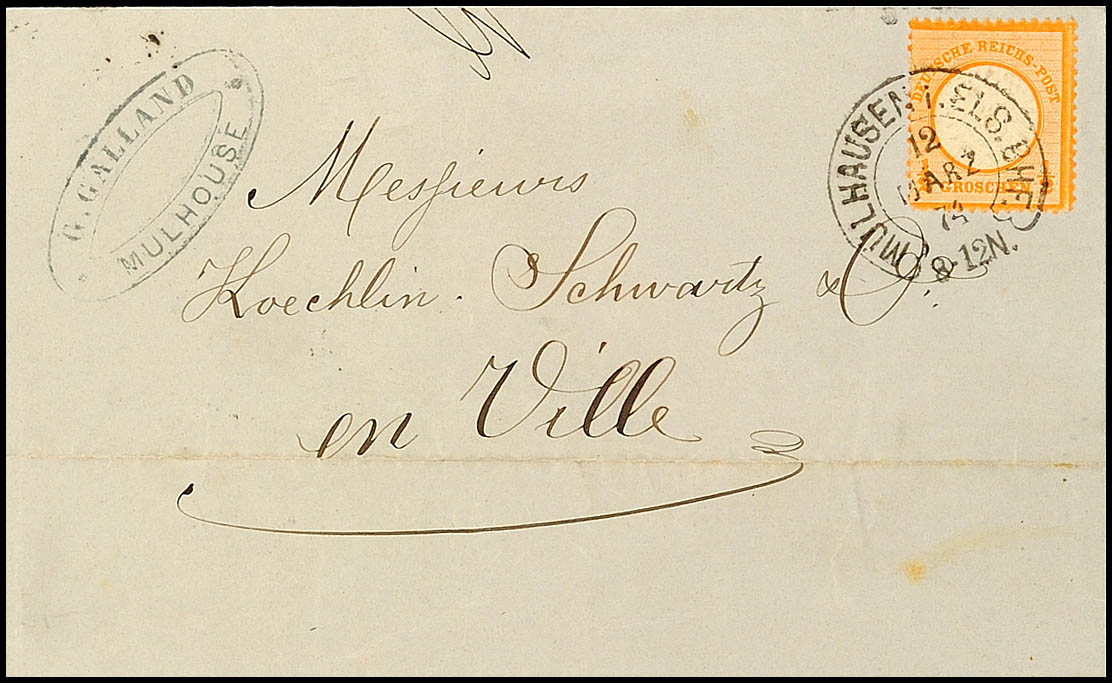 G. GALLAND
MULHOUSE
DEUTSCHE REICHS-POST
GROSCHEN
MÜLHAUSEN I. ELS. BHF
12
MARZ
74
8-12N.
Messieurs
Koechlin. Schwartz & Co.
en Ville